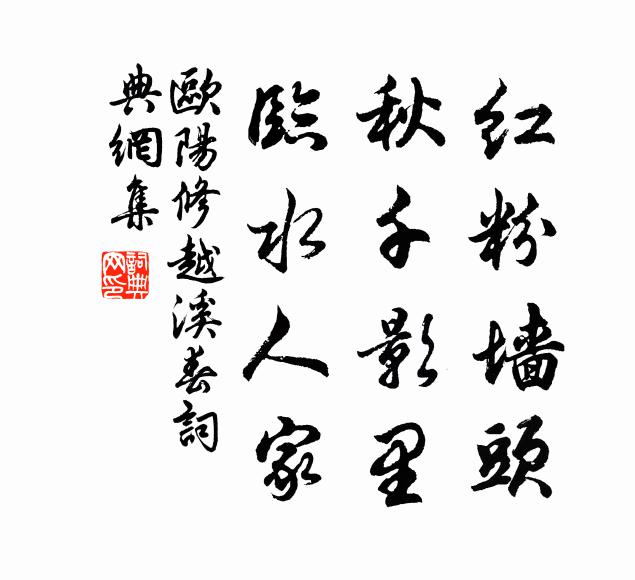 红粉墙頭
秋千影里
臨水人家
歐陽修越溪春詞
典網集
詞典網印